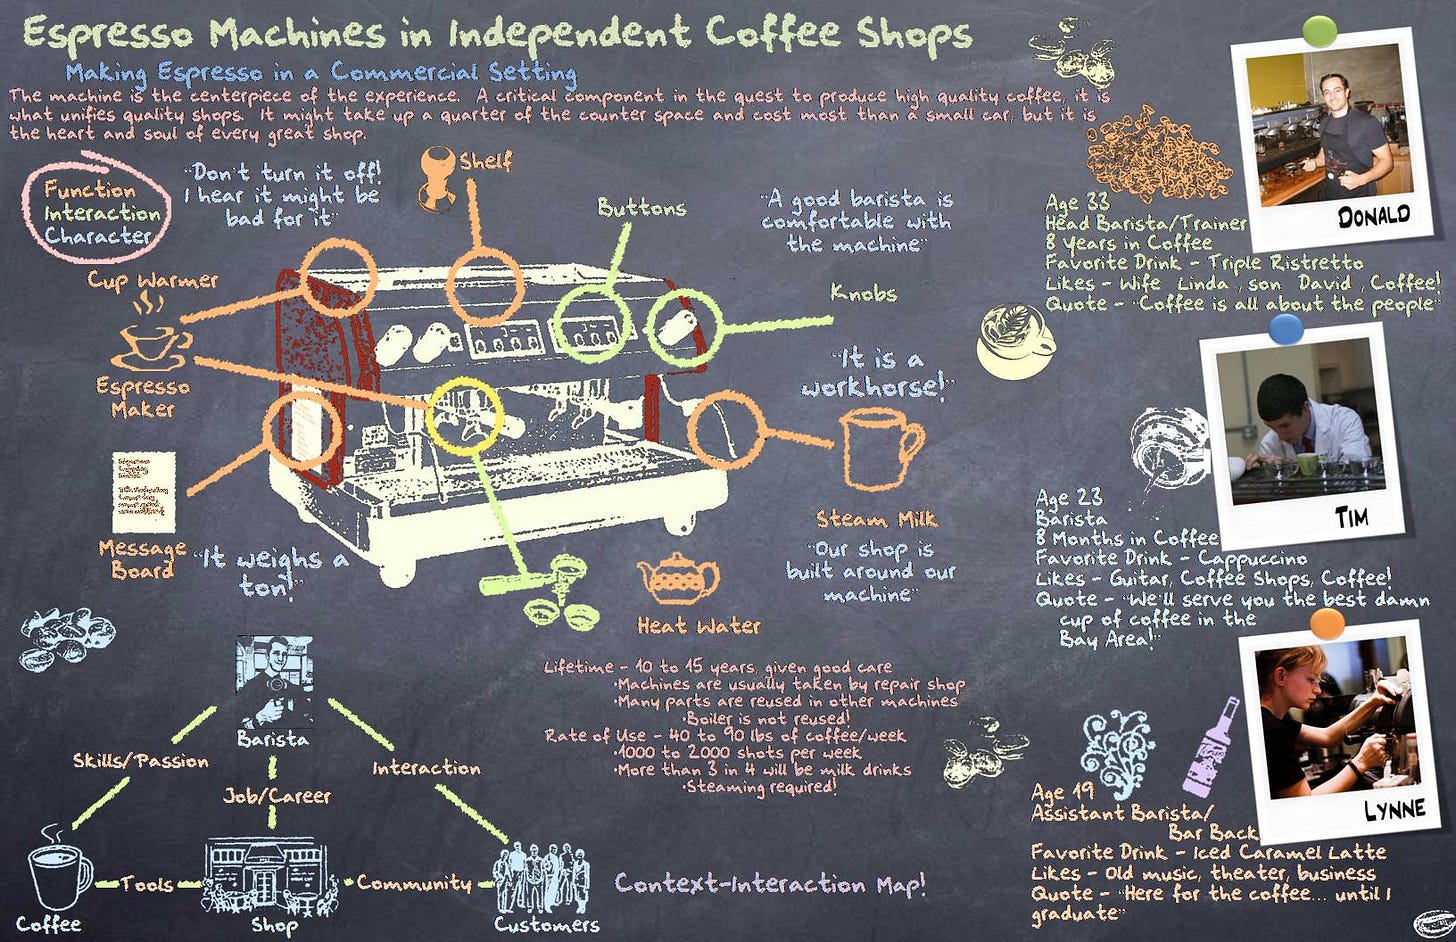 Espresso Machines in Independent Coffee Shops
Making Espresso in a Commercial Setting
The machine is the centerpiece of the experience. A critical component in the quest to produce high quality coffee, it is
what unifies quality shops. It might take up a quarter of the counter space and cost most than a small car, but it is
the heart and soul of every great shop.
Function
Interaction
Character
"Don't turn it off!
I hear it might be
bad for it"
Shelf
Buttons
"A good barista is
comfortable with
the machine"
Cup Warmer
Knobs
Espresso
Maker
"It is a
workhorse!"
Message
Board
"It weighs a
ton!"
Steam Milk
"Our shop is
built around our
machine"
Heat Water
DONALD
Age 33
Head Barista/Trainer
8 Years in Coffee
Favorite Drink - Triple Ristretto
Likes - Wife Linda , son David , Coffee!
Quote - "Coffee is all about the people"
TIM
Age 23
Barista
8 Months in Coffee
Favorite Drink - Cappuccino
Likes - Guitar, Coffee Shops, Coffee!
Quote - "We'll serve you the best damn
cup of coffee in the
Bay Area!"
LYNNE
Age 19
Assistant Barista/
Bar Back
Favorite Drink - Iced Caramel Latte
Likes - Old music, theater, business
Quote - "Here for the coffee... until I
graduate"
Lifetime - 10 to 15 years, given good care
•Machines are usually taken by repair shop
•Many parts are reused in other machines
•Boiler is not reused!
Rate of Use - 40 to 90 lbs of coffee/week
•1000 to 2000 shots per week
•More than 3 in 4 will be milk drinks
•Steaming required!
Barista
Skills/Passion
Interaction
Job/Career
Tools
Community
Coffee
Shop
Customers
Context-Interaction Map!